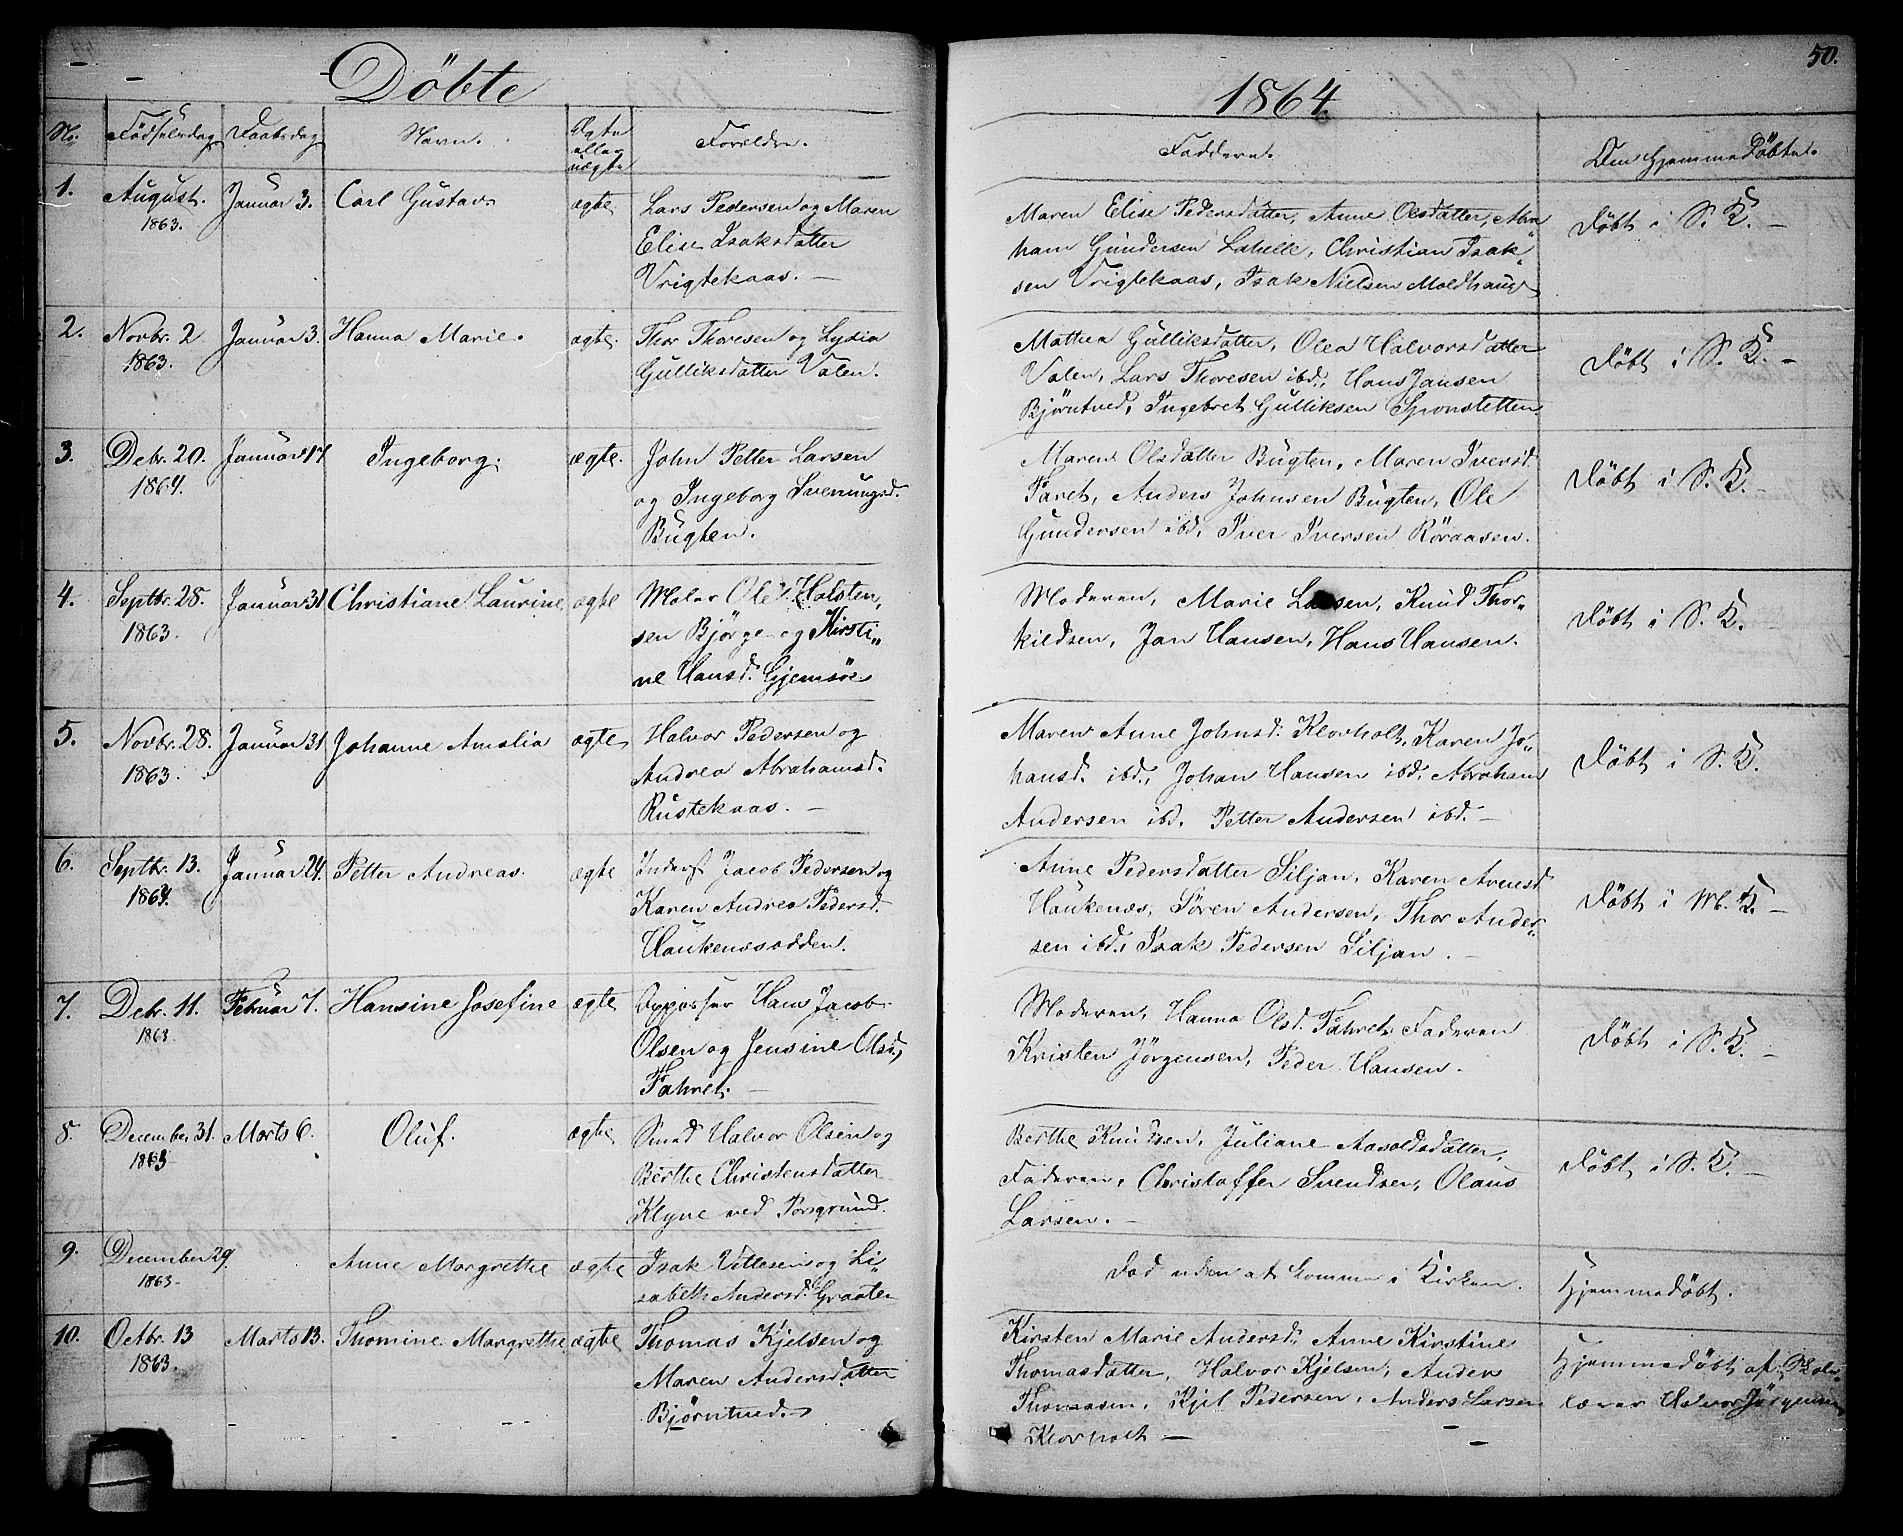 Döbte
1864.
50.
No. Födselsdag Daabsdag Navn. Ægte eller uægte Forældre. Faddere. Om Hjemmedöbte.
1. August. 1863. Januar 3. Carl Gustav. ægte. Lars Pedersen og Maren
Elise Isaksdatter
Vrigtekaas. —
Maren Elise Pedersdatter, Anne Olsdatter, Abra
ham Gundersen Lahelle, Christian Isak„
sen Vrigtekaas, Isak Nielsen Moldhaug
Döbt i S. K. —
2. Novbr. 2 1863. Januar 3. Hanna Marie. ægte. Thor Thoresen og Lydia
Gulliksdatter Valen.
Mathea Gulliksdatter, Olea Halvorsdatter
Valen, Lars Thoresen ibd., Hans Jansen
Björntved, Ingebret Gulliksen Sponstetten
Döbt i S. K. —
3. Debr. 20. 1864. Januar 17 Ingeborg. ægte. John Petter Larsen
og Ingeborg Sveinungsd.
Bugten.
Maren Olsdatter Bugten, Maren Iversd.
Faret, Anders Johnsen Bugten, Ole
Gundersen ibd. Iver Iversen Röraasen.
Döbt i S. K. —
4. Septbr. 28. 1863. Januar 31 Christiane Laurine ægte Maler Ole Halsten,
sen Björge og Kirsti„
ne Hansd. Gjemsöe
Moderen, Marie Larsen, Knud Thor„
kildsen, Jan Hansen, Hans Hansen.
Döbt i S. K. —
5. Novbr. 28. 1863. Januar 31 Johanne Amalia ægte Halvor Pedersen og
Andrea Abrahamsd.
Rustekaas. —
Maren Anne Johnsd. Klovholt, Karen Jo„
hansd. ibd., Johan Hansen ibd. Abraham
Andersen ibd. Petter Andersen ibd. —
Döbt i S. K.
6. Septbr. 13. 1864. Januar 24. Petter Andreas. ægte Inderst Jacob Pedersen og
Karen Andrea Pedersd.
Haukenæsodden.
Anne Pedersdatter Siljan, Karen Arnesd.
Haukenæs, Sören Andersen, Thor Ander„
sen ibd., Isak Pedersen Siljan. —
Döbt i M. K. —
7. Debr. 11. 1863 Februar 7. Hansine Josefine ægte Hans Jacob
Olsen og Jensine Olsd.,
Fahret. —
Moderen, Hanna Olsd. Fahret. Faderen
Kristen Jörgensen, Peder Hansen.
Döbt i S. K. —
8. December 31. 1863 Marts 6. Oluf. ægte Smed Halvor Olsen og
Berthe Christensdatter
Klyve ved Porsgrund.
Berthe Knudsen, Juliane Aasoldsdatter,
Faderen, Christoffer Svendsen, Olaus
Larsen. —
Döbt i S. K. —
9. December 29. 1863. Anne Margrethe ægte Isak Villesen og Li„
sabeth Andersd. Graaten
Död uden at komme i Kirken.
Hjemmedöbt.
10. Octbr. 13 1863. Marts 13. Thomine Margrethe ægte Thomas Kjelsen og
Maren Andersdatter
Björntved.
Kirsten Marie Andersd. Anne Kirstine
Thomasdatter, Halvor Kjelsen, Anders
Thomasen, Kjel Pedersen, Anders Larsen
Klovholt —
Hjemmedöbt af Skole„
lærer Halvor Jörgensen